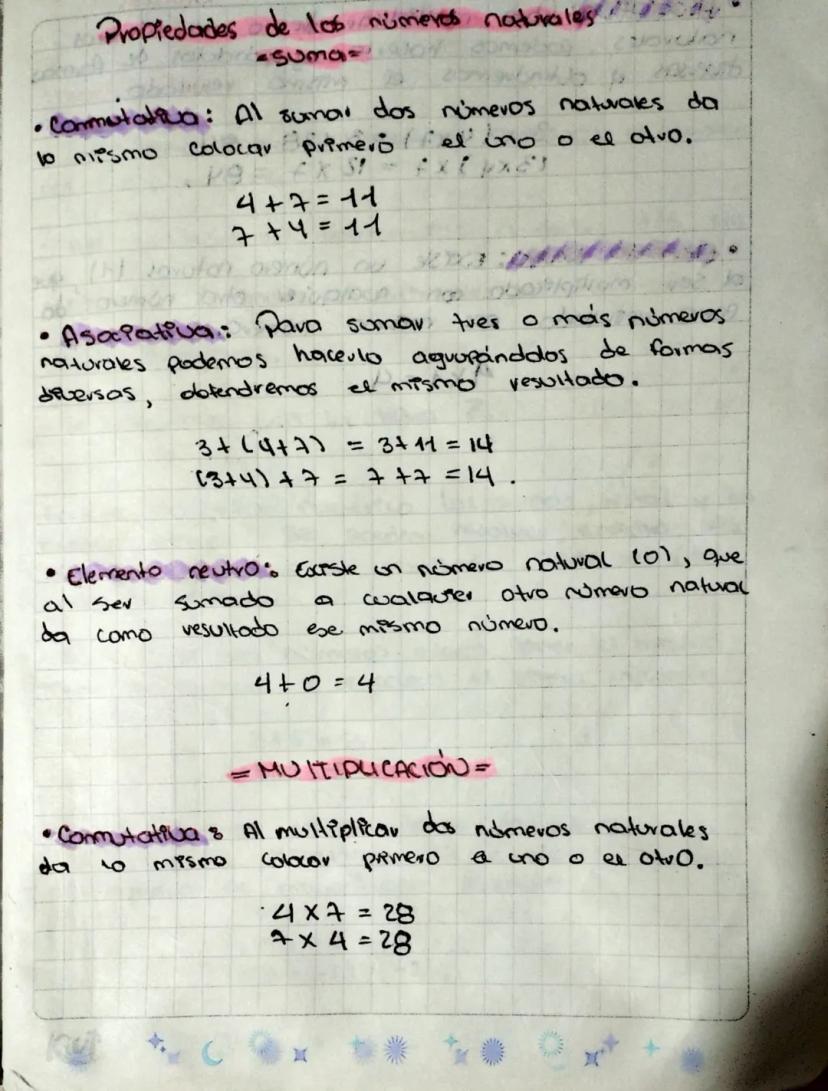 Propiedades de los números naturales
=SUMA=
• Conmutativa: Al sumar dos números naturales da
lo mismo colocar primero el uno o el otro.
4 + 7 = 11
7 + 4 = 11
• Asociativa: Para sumar tres o más números
naturales podemos hacerlo agrupándolos de formas
diversas, obtendremos el mismo resultado.
3 + (4+7) = 3+11 = 14
(3+4) + 7 = 7+7 = 14.
• Elemento neutro: Existe un número natural (0), que
al ser sumado a cualquier otro número natural
da como resultado ese mismo número.
4 + 0 = 4
= MULTIPLICACIÓN =
• Conmutativa: Al multiplicar dos números naturales
da lo mismo colocar primero el uno o el otro.
4 x 7 = 28
7 x 4 = 28